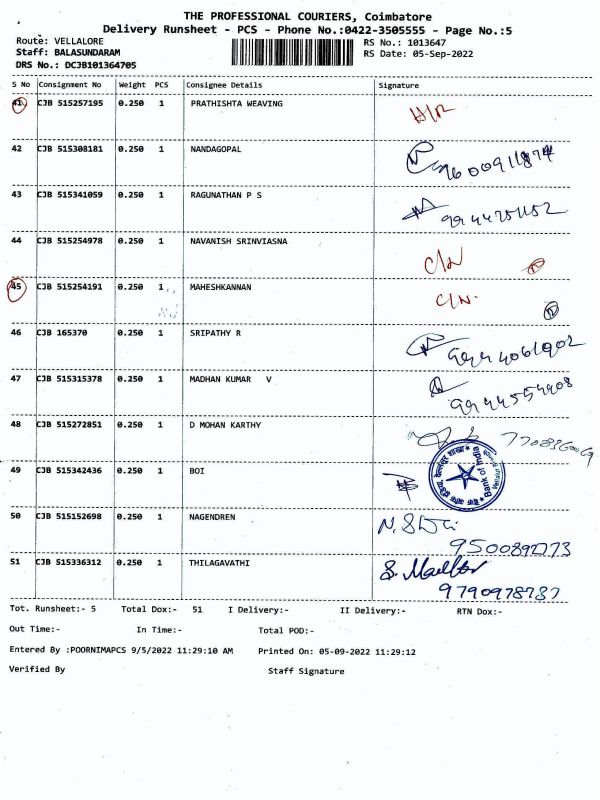 THE PROFESSIONAL COURIERS, Coimbatore
Delivery Runsheet - PCS - Phone No.:0422-3505555 - Page No.:5
Route: VELLALORE RS No.: 1013647
Staff: BALASUNDARAM RS Date: 05-Sep-2022
DRS No.: DCJB101364705
S No Consignment No Weight PCS Consignee Details Signature
41 CJB 515257195 0.250 1 PRATHISHTA WEAVING
42 CJB 515308181 0.250 1 NANDAGOPAL 9600911874
43 CJB 515341059 0.250 1 RAGUNATHAN P S
44 CJB 515254978 0.250 1 NAVANISH SRINVIASNA
45 CJB 515254191 0.250 1 MAHESHKANNAN
46 CJB 165370 0.250 1 SRIPATHY R
47 CJB 515315378 0.250 1 MADHAN KUMAR V
48 CJB 515272851 0.250 1 D MOHAN KARTHY
49 CJB 515342436 0.250 1 BOI Bank of India
50 CJB 515152698 0.250 1 NAGENDREN
51 CJB 515336312 0.250 1 THILAGAVATHI
9790978787
Tot. Runsheet:- 5 Total Dox:- 51 I Delivery:- II Delivery:- RTN Dox:-
Out Time:- In Time:- Total POD:-
Entered By :POORNIMAPCS 9/5/2022 11:29:10 AM Printed On: 05-09-2022 11:29:12
Verified By Staff Signature